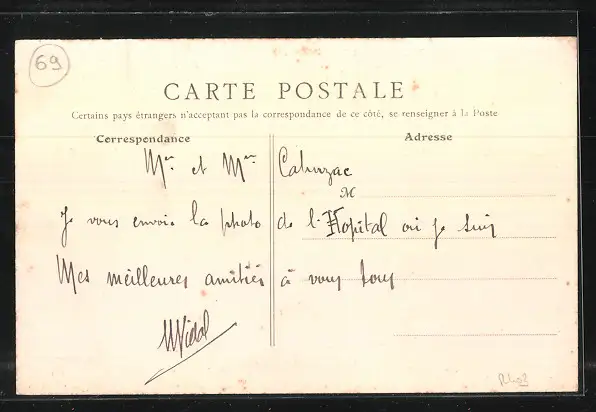 69
CARTE POSTALE
Certains pays étrangers n'acceptant pas la correspondance de ce côté, se renseigner à la Poste
Correspondance
Adresse
Mr et Mme Cahuzac
M
Je vous envoie la photo de l'Hopital où je suis
Mes meilleures amitiés à vous tous
Vidal